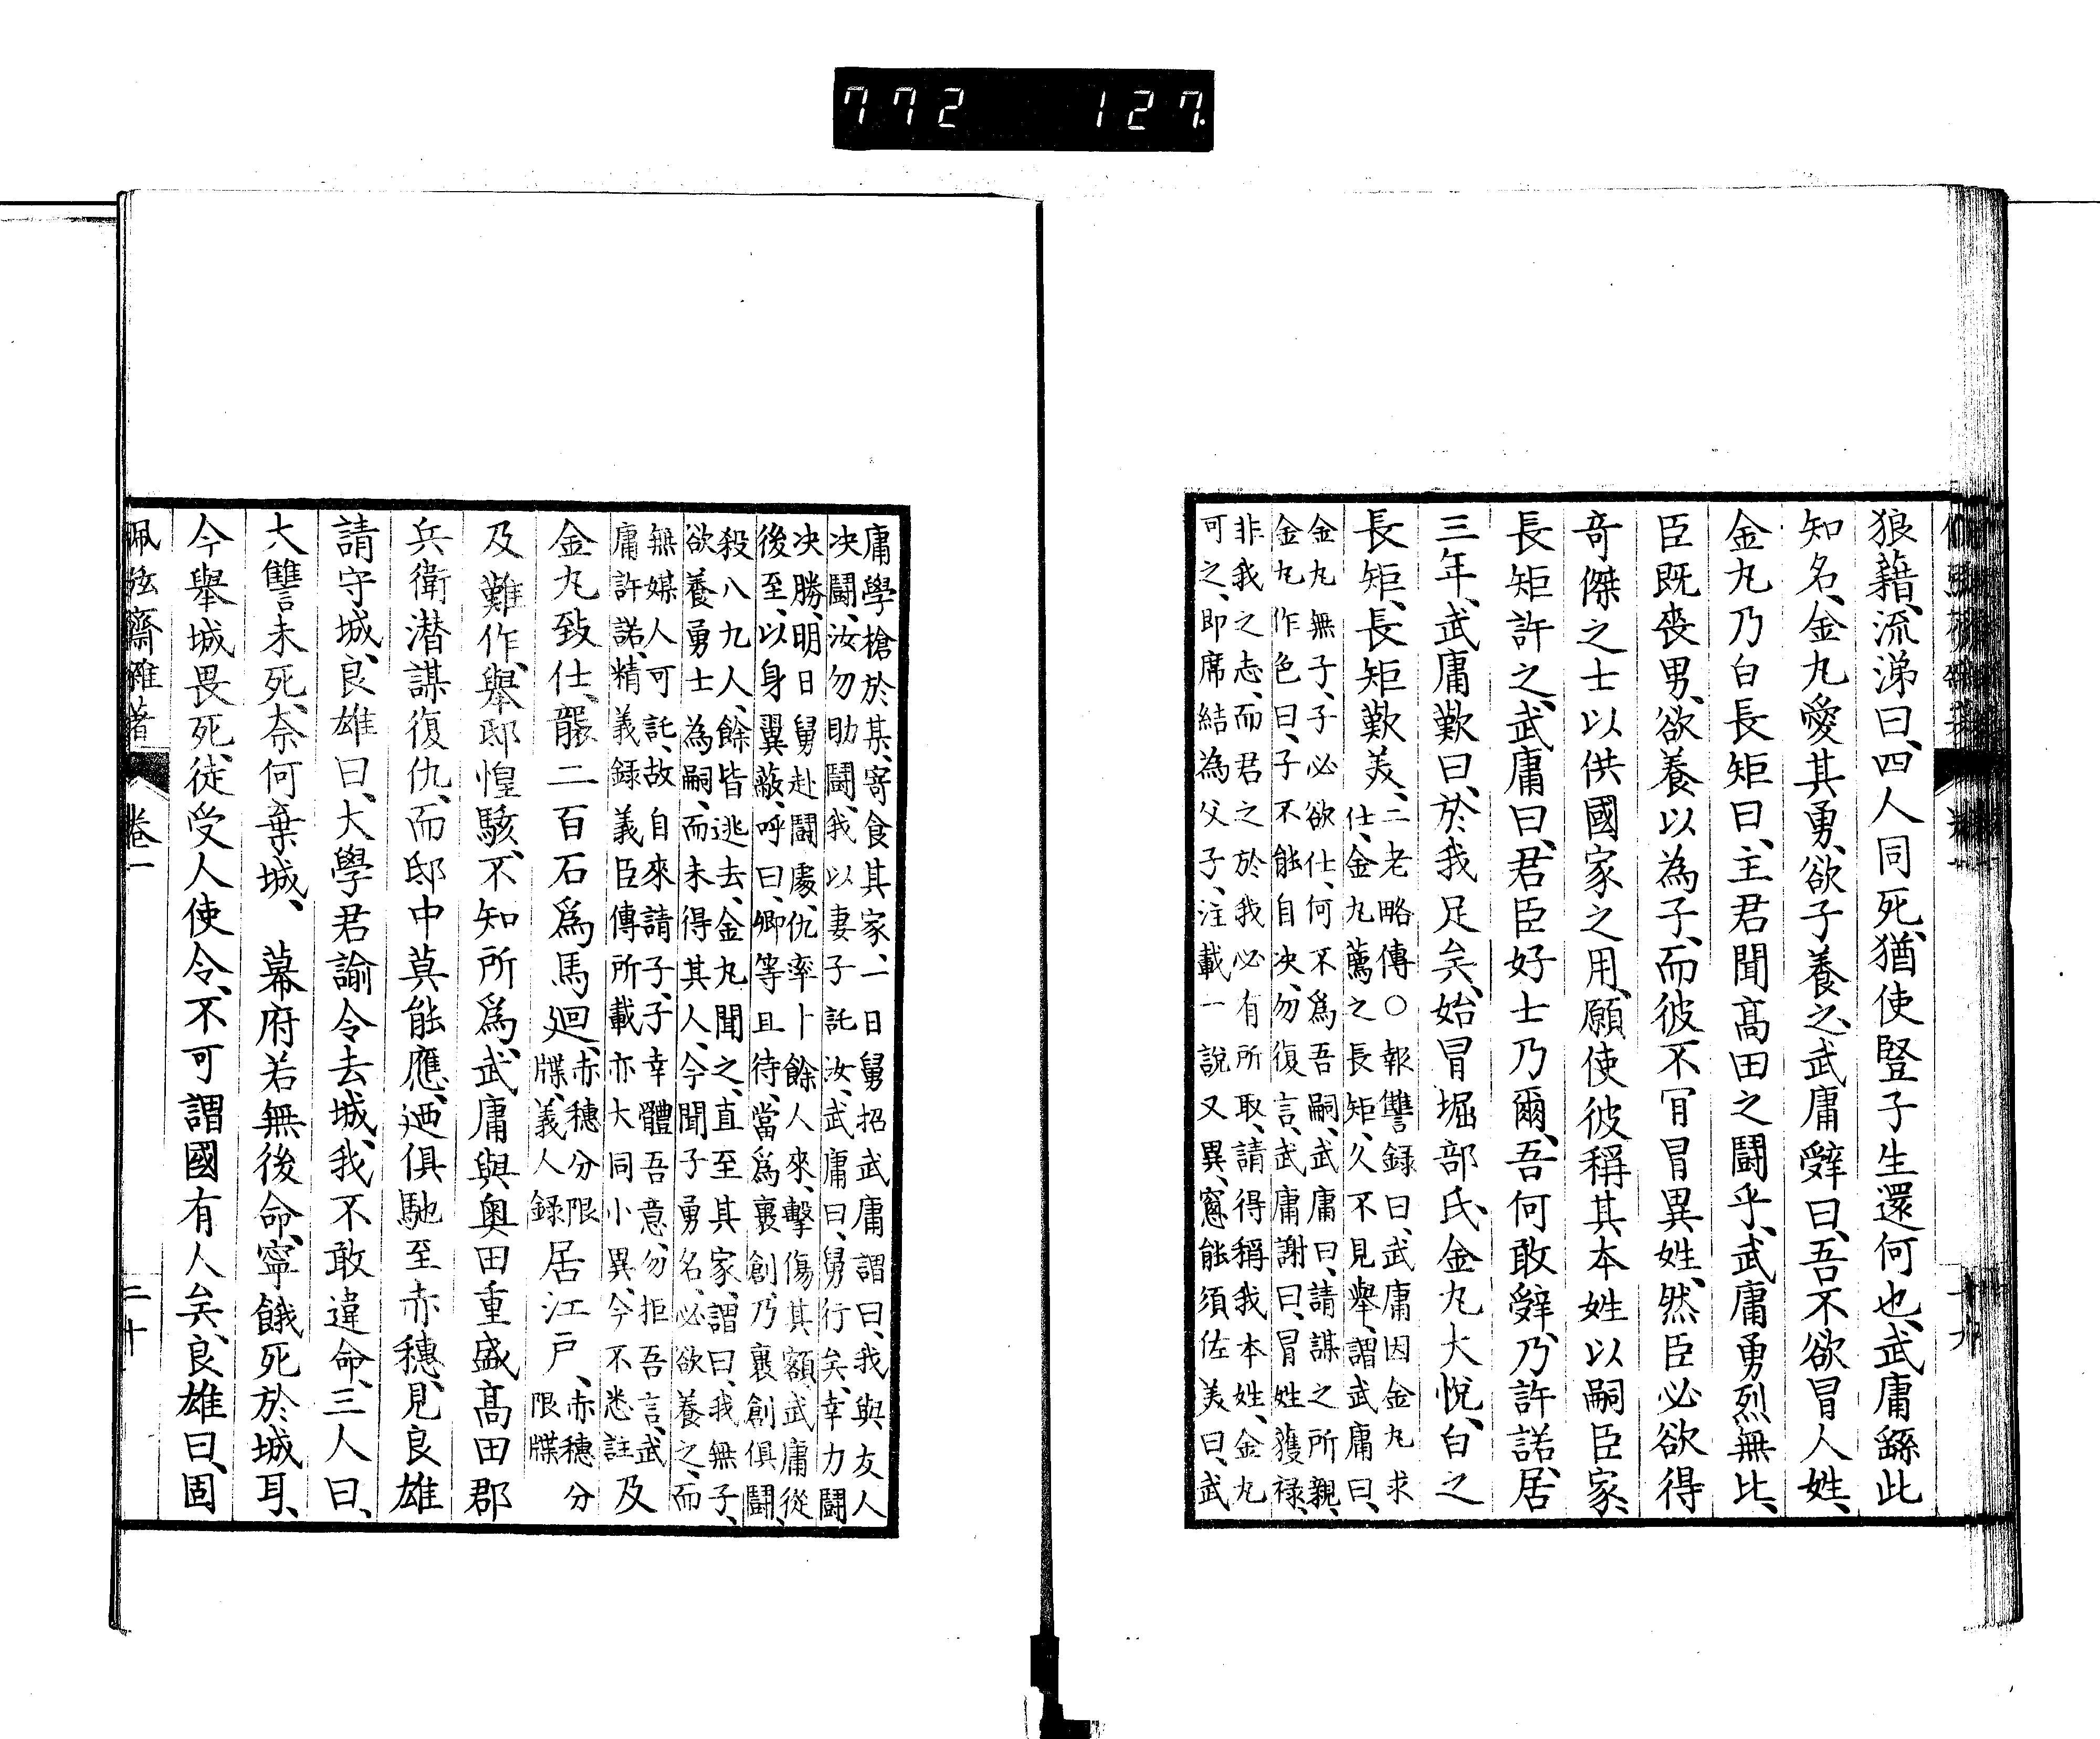 772 127.
狼藉、流涕曰、四人同死、猶使豎子生還何也、武庸繇此
知名、金丸愛其勇、欲子養之、武庸辭曰、吾不欲冒人姓、
金丸乃白長矩曰、主君聞髙田之鬪乎、武庸勇烈無比、
臣既喪男、欲養以為子、而彼不肎冒異姓、然臣必欲得
奇傑之士以供國家之用、願使彼稱其本姓以嗣臣家、
長矩許之、武庸曰、君臣好士乃爾、吾何敢辭、乃許諾、居
三年、武庸歎曰、於我足矣、始冒堀部氏、金丸大悅、白之
長矩、長矩歎美、
二老略傳〇報讐録曰、武庸因金丸求
仕、金丸薦之長矩、久不見擧、謂武庸曰、
金丸無子、子必欲仕、何不爲吾嗣、武庸曰、請謀之所親、
金丸作色曰、子不能自决、勿復言、武庸謝曰、冒姓獲禄、
非我之志、而君之於我必有所取、請得稱我本姓、金丸
可之、即席結為父子、注載一說又異、窻能須佐美曰、武
庸學槍於某、寄食其家、一日舅招武庸謂曰、我與友人
决鬪、汝勿助鬪、我以妻子託汝、武庸曰、舅行矣、幸力鬪
决勝、明日舅赴鬪處、仇率卜餘人來、擊傷其額、武庸從
後至、以身翼蔽、呼曰、卿等且待、當爲裹創、乃裹創俱鬪、
殺八九人、餘皆逃去、金丸聞之、直至其家、謂曰、我無子、
欲養勇士為嗣、而未得其人、今聞子勇名、必欲養之、而
無媒人可託、故自來請子、子幸體吾意、勿拒吾言、武
庸許諾、精義録義臣傳所載亦大同小異、今不悉註
及
金丸致仕、龎二百石爲馬廻、
赤穗分限
牒、義人録
居江戸、
赤穗分
限牒
及難作、擧邸惶駭、不知所爲、武庸與奥田重盛髙田郡
兵衛潜謀復仇、而邸中莫能應、迺俱馳至赤穗、見良雄
請守城、良雄曰、大學君諭令去城、我不敢違命、三人曰、
大讐未死、奈何棄城、幕府若無後命、寧餓死於城耳、
今擧城畏死、徒受人使令、不可謂國有人矣、良雄曰、固
佩弦齋雜著
卷一
二十